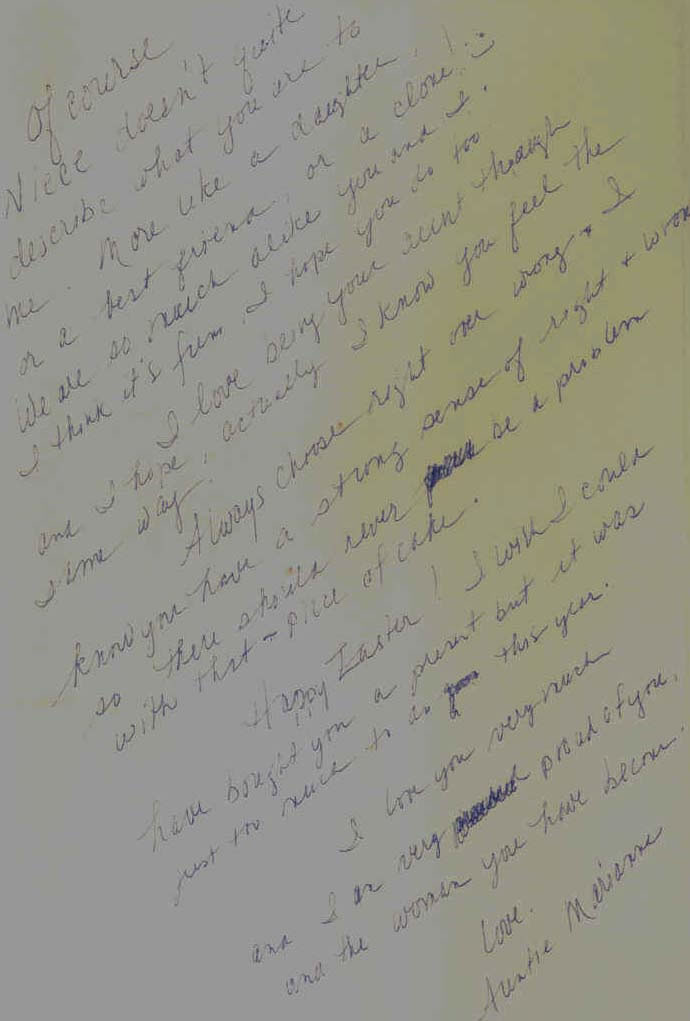 Of course
Niece doesn't quite
describe what you are to
me. More like a daughter,
or a best friend, or a clone! :)
We are so much alike you and I.
I think it's fun, I hope you do too
I love being your aunt though
and I hope, actually I know you feel the
same way.
Always choose right over wrong + I
know you have a strong sense of right + wrong
so there should never be a problem
with that - piece of cake.
Happy Easter! I wish I could
have bought you a present but it was
just too much to do this year.
I love you very much
and I am very proud of you,
and the woman you have become.
Love.
Auntie Marianne